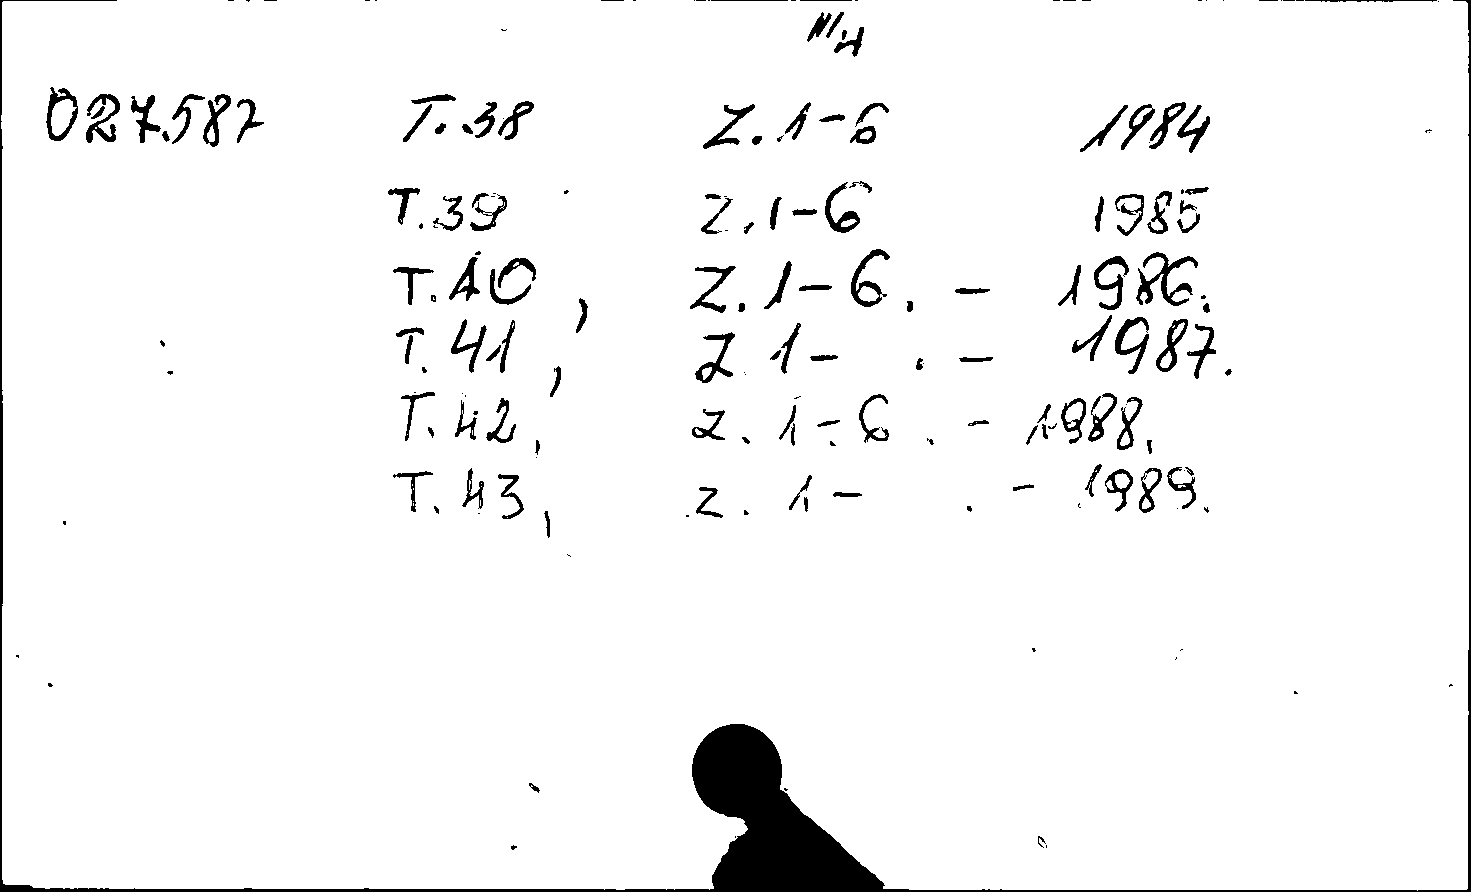 III/4
027.587 T.38 Z.1-6 1984
T.39 Z.1-6 1985
T.40, Z.1-6. - 1986.
T.41, Z 1- . - 1987.
T.42, z. 1-6. - 1988.
T.43, z. 1- . - 1989.